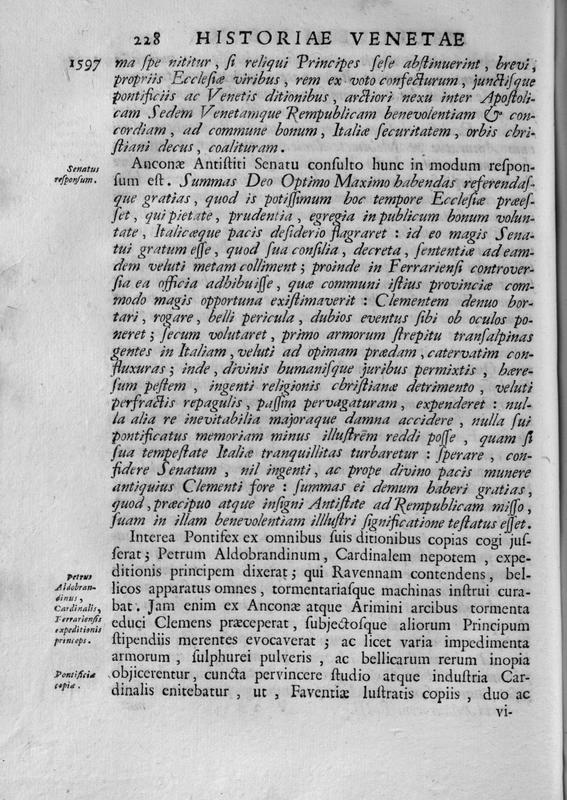 228 HISTORIAE VENETAE
1597 ma ſpe nititur, ſi reliqui Principes ſeſe abſtinuerint, brevi,
propriis Eccleſiæ viribus, rem ex voto confecturum, junctiſque
pontificiis ac Venetis ditionibus, arctiori nexu inter Apoſtoli-
cam Sedem Venetamque Rempublicam benevolentiam & con-
cordiam, ad commune bonum, Italiæ ſecuritatem, orbis chri-
ſtiani decus, coalituram.
Senatus
reſponſum.
Anconæ Antiſtiti Senatu conſulto hunc in modum reſpon-
ſum eſt. Summas Deo Optimo Maximo habendas referendaſ-
que gratias, quod is potiſſimum hoc tempore Eccleſiæ præeſ-
ſet, qui pietate, prudentia, egregia in publicum bonum volun-
tate, Italicæque pacis deſiderio flagraret: id eo magis Sena-
tui gratum eſſe, quod ſua conſilia, decreta, ſententiæ ad eam-
dem veluti metam colliment; proinde in Ferrarienſi controver-
ſia ea officia adhibuiſſe, quæ communi iſtius provinciæ com-
modo magis opportuna exiſtimaverit: Clementem denuo hor-
tari, rogare, belli pericula, dubios eventus ſibi ob oculos po-
neret; ſecum volutaret, primo armorum ſtrepitu tranſalpinas
gentes in Italiam, veluti ad opimam prædam, catervatim con-
fluxuras; inde, divinis humaniſque juribus permixtis, hære-
ſum peſtem, ingenti religionis chriſtianæ detrimento, veluti
perfractis repagulis, paſſim pervagaturam, expenderet: nul-
la alia re inevitabilia majoraque damna accidere, nulla ſui
pontificatus memoriam minus illuſtrem reddi poſſe, quam ſi
ſua tempeſtate Italiæ tranquillitas turbaretur: ſperare, con-
fidere Senatum, nil ingenti, ac prope divino pacis munere
antiquius Clementi fore: ſummas ei demum haberi gratias,
quod, præcipuo atque inſigni Antiſtite ad Rempublicam miſſo,
ſuam in illam benevolentiam illluſtri ſignificatione teſtatus eſſet.
Interea Pontifex ex omnibus ſuis ditionibus copias cogi juſ-
ſerat; Petrum Aldobrandinum, Cardinalem nepotem, expe-
ditionis principem dixerat; qui Ravennam contendens, bel-
licos apparatus omnes, tormentariaſque machinas inſtrui cura-
bat. Jam enim ex Anconæ atque Arimini arcibus tormenta
educi Clemens præceperat, ſubjectoſque aliorum Principum
ſtipendiis merentes evocaverat; ac licet varia impedimenta
armorum, ſulphurei pulveris, ac bellicarum rerum inopia
objicerentur, cuncta pervincere ſtudio atque induſtria Car-
dinalis enitebatur, ut, Faventiæ luſtratis copiis, duo ac
Petrus
Aldobran-
dinus,
Cardinalis,
Ferrarienſis
expeditionis
princeps.
Pontificiæ
copiæ.
vi-